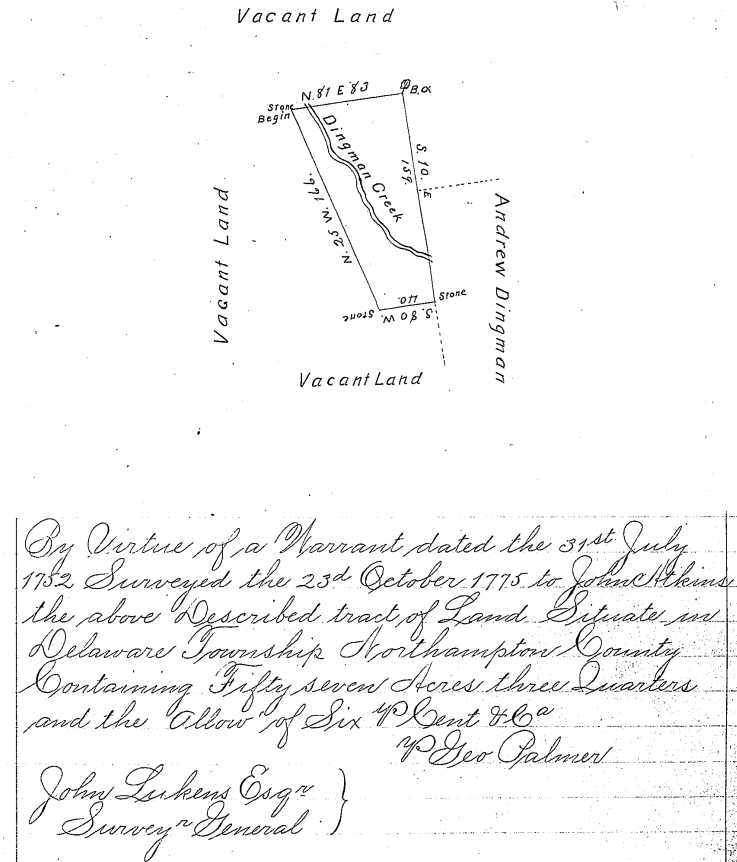 Vacant Land
N. 81 E 83
Box
Stone
Begin
Dingman Creek
S. 10. E
159.
N. 25 W. 166.
Vacant Land
Andrew Dingman
Stone
40.
S. 80 W. Stone
Vacant Land
By Virtue of a Warrant dated the 31st July
1752 Surveyed the 23d October 1775 to John Atkins
the above Described tract of Land Situate in
Delaware Township Northampton County
Containing Fifty seven Acres three Quarters
and the Allowce of Six P Cent &Ca
P Geo Palmer
John Lukens Esqr
Surveyr General